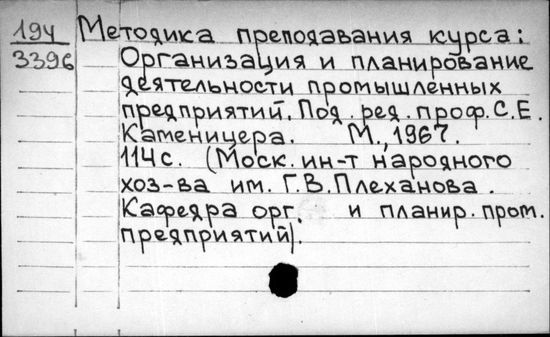 194 Методика преподавания курса:
3396 Организация и планирование
деятельности промышленных
предприятий. Под. ред. проф. С.Е.
Каменицера. М., 1967.
114 с. (Моск. ин-т народного
хоз-ва им. Г.В. Плеханова.
Кафедра орг. и планир. пром.
предприятий).